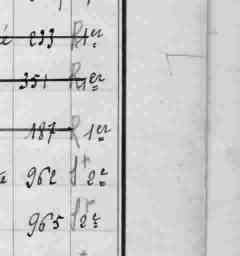 233 R 1er
351 R 1er
187 R 1er
962 St 2e
965 St 2e